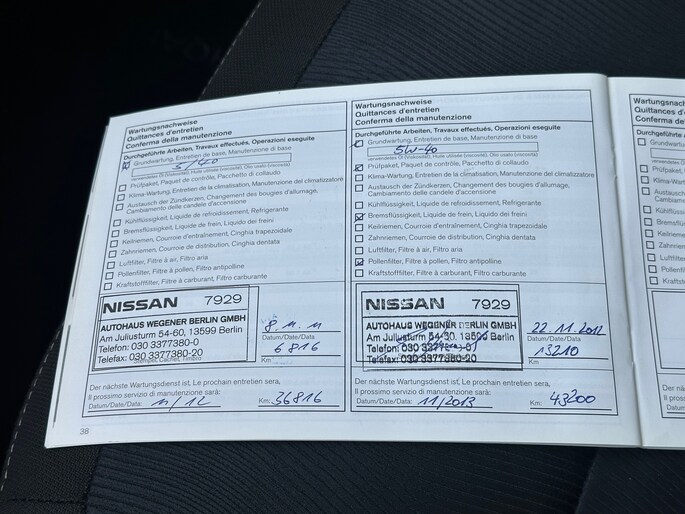 Wartungsnachweise
Quittances d'entretien
Conferma della manutenzione
Durchgeführte Arbeiten, Travaux effectués, Operazioni eseguite
Grundwartung, Entretien de base, Manutenzione di base
5/40
verwendetes Öl (Viskosität), Huile utilisée (viscosité), Olio usato (viscosità)
Prüfpaket, Paquet de contrôle, Pacchetto di collaudo
Klima-Wartung, Entretien de la climatisation, Manutenzione del climatizzatore
Austausch der Zündkerzen, Changement des bougies d'allumage,
Cambiamento delle candele d'accensione
Kühlflüssigkeit, Liquide de refroidissement, Refrigerante
Bremsflüssigkeit, Liquide de frein, Liquido dei freini
Keilriemen, Courroie d'entraînement, Cinghia trapezoidale
Zahnriemen, Courroie de distribution, Cinghia dentata
Luftfilter, Filtre à air, Filtro aria
Pollenfilter, Filtre à pollen, Filtro antipolline
Kraftstofffilter, Filtre à carburant, Filtro carburante
NISSAN 7929
AUTOHAUS WEGENER BERLIN GMBH
Am Juliusturm 54-60, 13599 Berlin
Telefon: 030 3377380-0
Telefax: 030 3377380-20
Stempel, Cachet, Timbro
8.11.11
Datum/Date/Data:
6816
Km:
Der nächste Wartungsdienst ist, Le prochain entretien sera,
Il prossimo servizio di manutenzione sarà:
Datum/Date/Data: 11/12 Km: 36816
38
Wartungsnachweise
Quittances d'entretien
Conferma della manutenzione
Durchgeführte Arbeiten, Travaux effectués, Operazioni eseguite
Grundwartung, Entretien de base, Manutenzione di base
5W-40
verwendetes Öl (Viskosität), Huile utilisée (viscosité), Olio usato (viscosità)
Prüfpaket, Paquet de contrôle, Pacchetto di collaudo
Klima-Wartung, Entretien de la climatisation, Manutenzione del climatizzatore
Austausch der Zündkerzen, Changement des bougies d'allumage,
Cambiamento delle candele d'accensione
Kühlflüssigkeit, Liquide de refroidissement, Refrigerante
Bremsflüssigkeit, Liquide de frein, Liquido dei freini
Keilriemen, Courroie d'entraînement, Cinghia trapezoidale
Zahnriemen, Courroie de distribution, Cinghia dentata
Luftfilter, Filtre à air, Filtro aria
Pollenfilter, Filtre à pollen, Filtro antipolline
Kraftstofffilter, Filtre à carburant, Filtro carburante
NISSAN 7929
AUTOHAUS WEGENER BERLIN GMBH
Am Juliusturm 54-30, 13599 Berlin
Telefon: 030
Telefax: 030 3377380-20
22.11.2012
Datum/Date/Data:
13210
Km:
Der nächste Wartungsdienst ist, Le prochain entretien sera,
Il prossimo servizio di manutenzione sarà:
Datum/Date/Data: 11/2013 Km: 43200